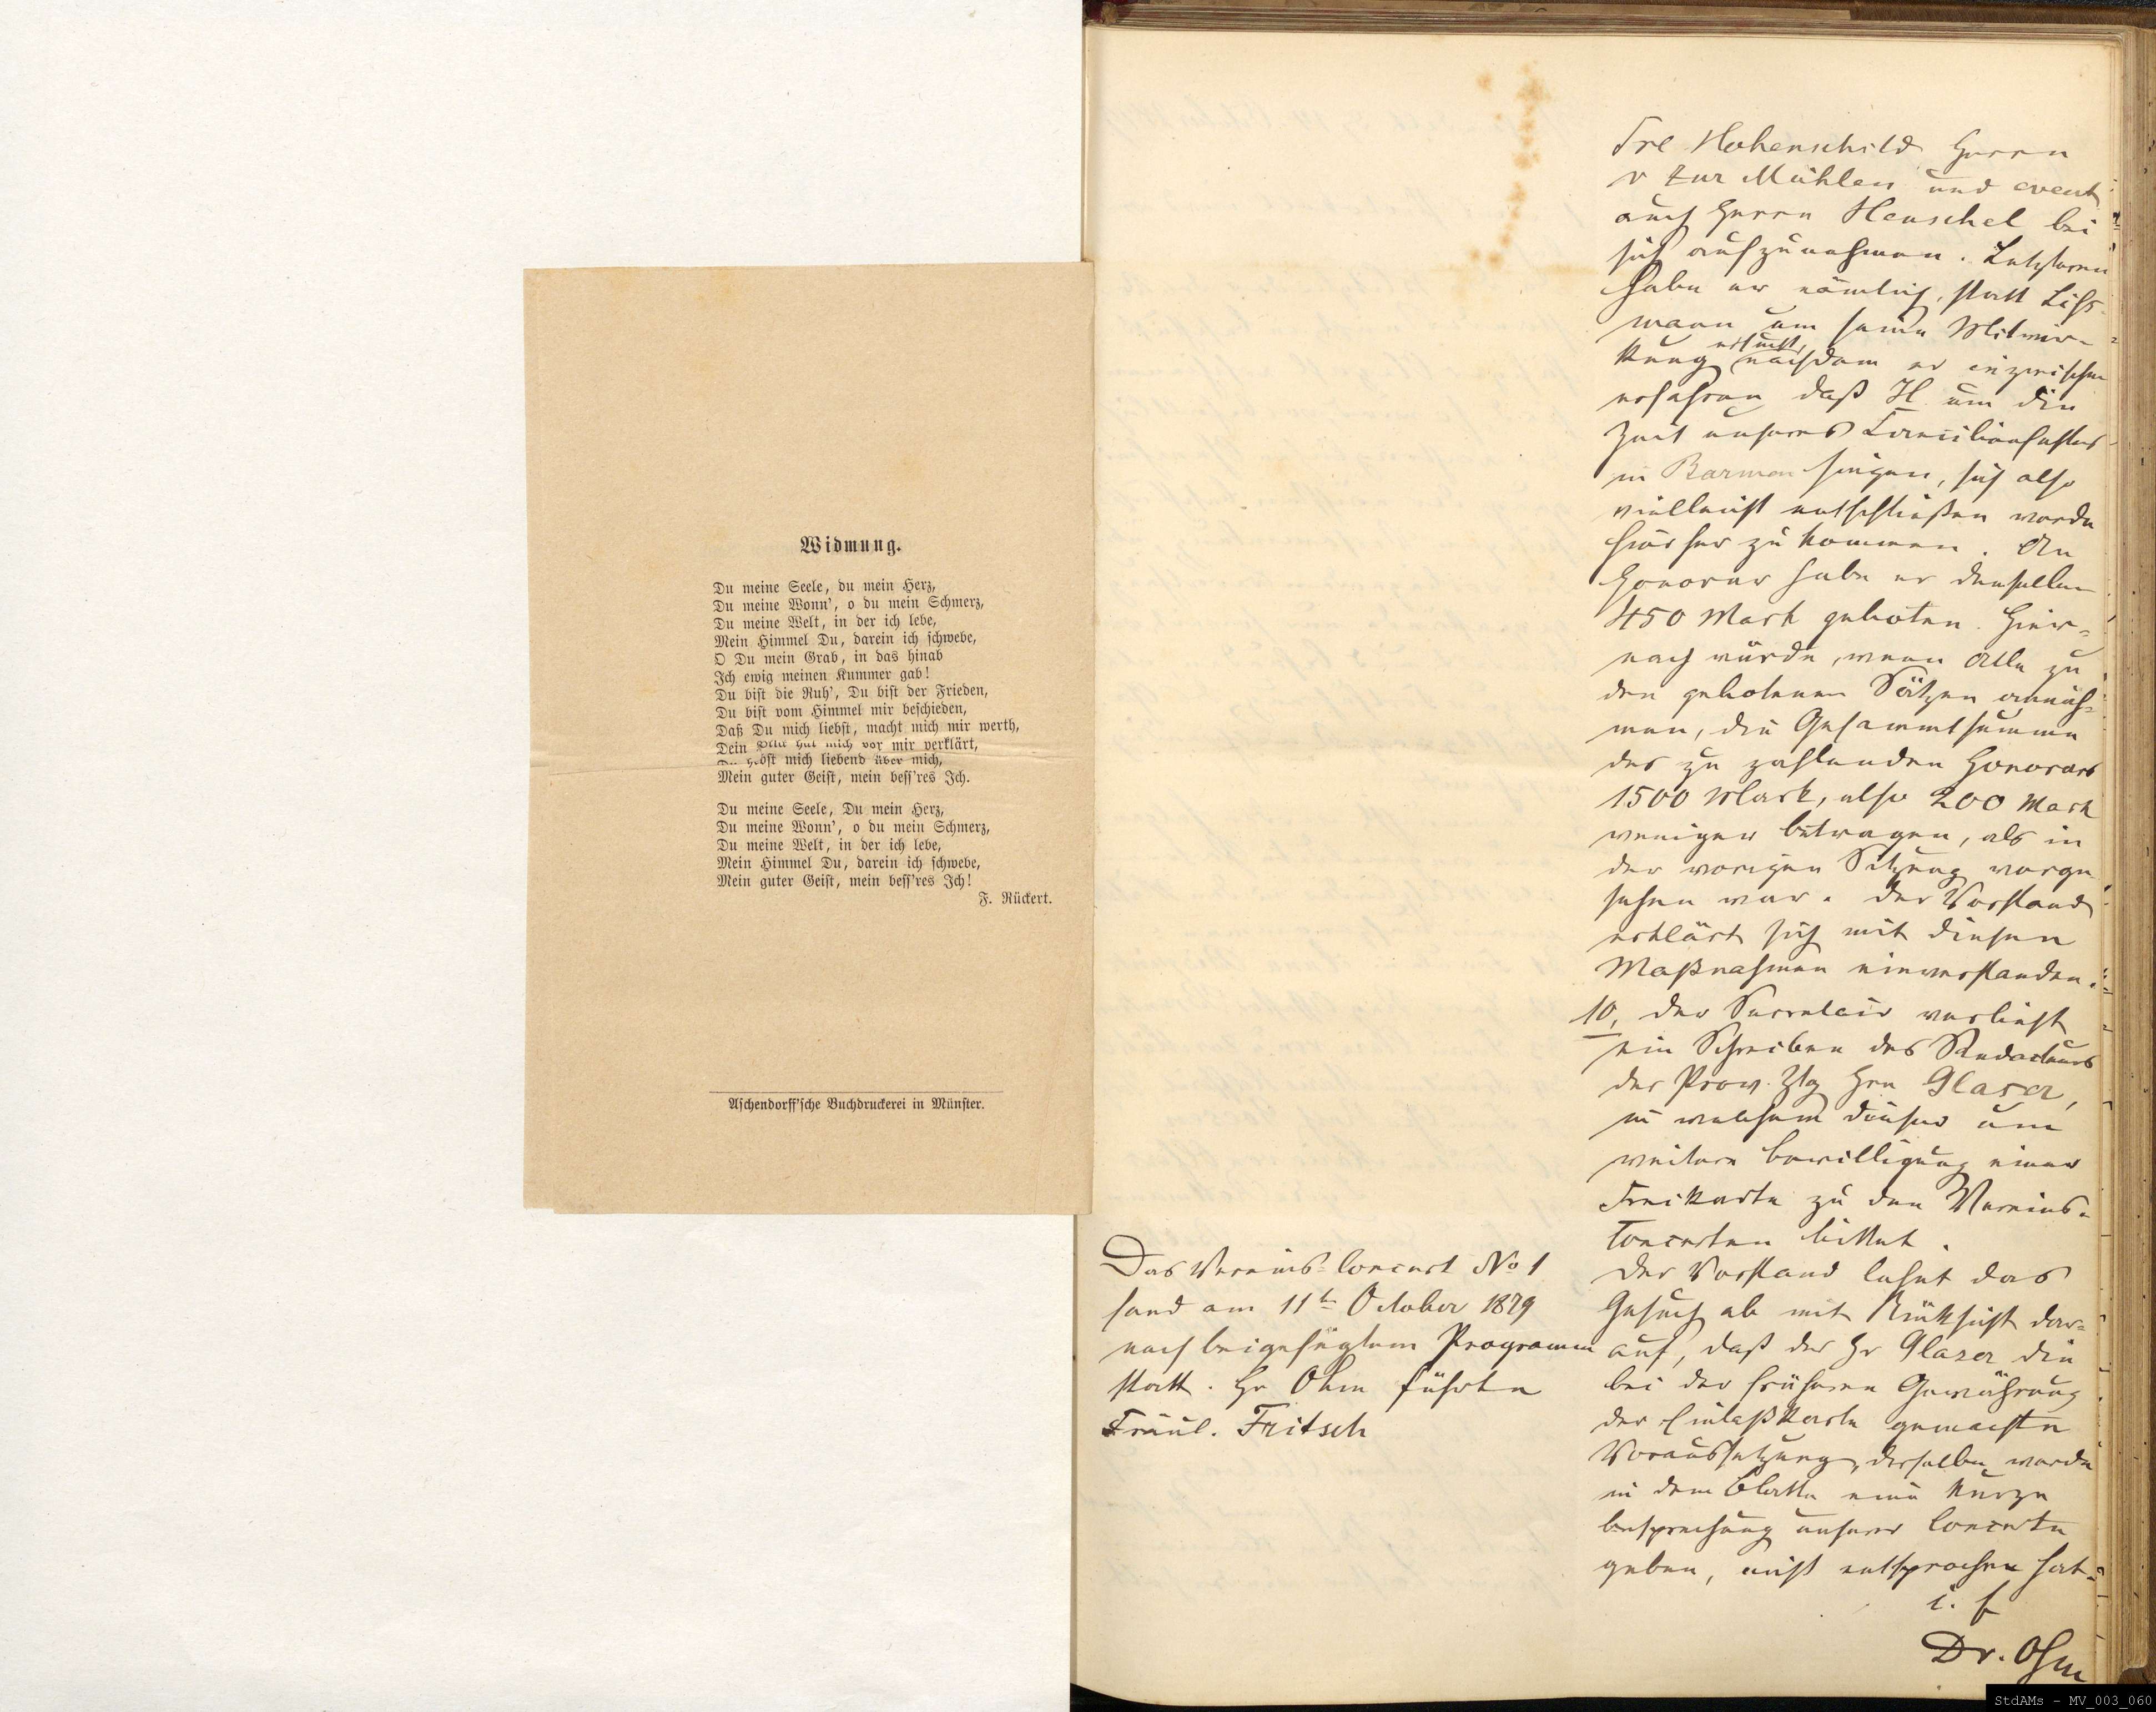 Widmung.
Du meine Seele, du mein Herz,
Du meine Wonn', o du mein Schmerz,
Du meine Welt, in der ich lebe,
Mein Himmel Du, darein ich schwebe,
O Du mein Grab, in das hinab
Ich ewig meinen Kummer gab!
Du bist die Ruh', Du bist der Frieden,
Du bist vom Himmel mir beschieden,
Daß Du mich liebst, macht mich mir werth,
Dein Blick hat mich vor mir verklärt,
Du hebst mich liebend über mich,
Mein guter Geist, mein bess'res Ich.
Du meine Seele, Du mein Herz,
Du meine Wonn', o du mein Schmerz,
Du meine Welt, in der ich lebe,
Mein Himmel Du, darein ich schwebe,
Mein guter Geist, mein bess'res Ich!
F. Rückert.
Aschendorff'sche Buchdruckerei in Münster.
Das Vereins-Concert No 1
fand am 11t October 1879
nach beigefügtem Programm
statt. Hr Ohm führte
Fräul. Fritsch
Frl Hohenschild, Herrn
v zur Mühlen und event
auch Herrn Henschel bei
sich aufzunehmen. Letzteren
habe er nämlich, statt Liß-
mann um seine Mitwir-
kung ersucht, nachdem er inzwischen
erfahren daß H. um die
Zeit unseres Cäcilienfestes
in Barmen singen, sich also
vielleicht entschließen werde
hierher zu kommen. An
Honorar habe er denselben
450 Mark geboten. Hier-
nach würde, wenn Alle zu
den gebotenen Sätzen annäh-
men, die Gesammtsumme
des zu zahlenden Honorars
1500 Mark, also 200 Mark
weniger betragen, als in
der vorigen Sitzung vorge
sehen war. Der Vorstand
erklärt sich mit diesen
Maßnahmen einverstanden.
10, Der Secretair verliest
ein Schreiben des Redacteurs
der Prov. Ztg Hrn Glaser,
in welchem dieser um
weitere Bewilligung einer
Freikarte zu den Vereins-
Concerten bittet.
Der Vorstand lehnt das
Gesuch ab mit Rücksicht dar-
auf, daß der Hr Glaser die
bei der früheren Gewährung
der Einlaßkarte gemachte
Voraussetzung, derselbe werde
in dem Blatte eine kurze
Besprechung unserer Concerte
geben, nicht entsprochen hat.
Dr. Ohm
StdAMs - MV_003_060